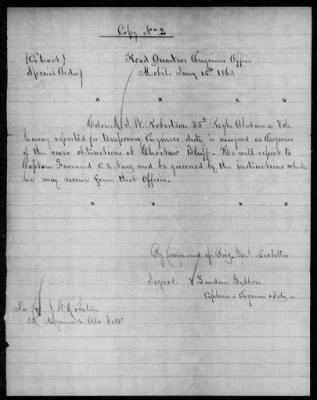 Copy No 2
(Extract) Head Quarters Engineer Office
Special Order Mobile Jany 15th 1863
x x x x
Colonel J. W. Robertson 35th Regt Alabama Vols
having reported for temporary Engineer duty is assigned as Engineer
of the river obstructions at Choctaw Bluff - He will report to
Captain Farrand C. S. Navy and be governed by the instructions which
he may receive from that Officer.
x x x x
By Command of Brig Genl Leadbetter
Signed.
Captain - Engineer &
J. W. Robertson
35 Regiment Ala Vols